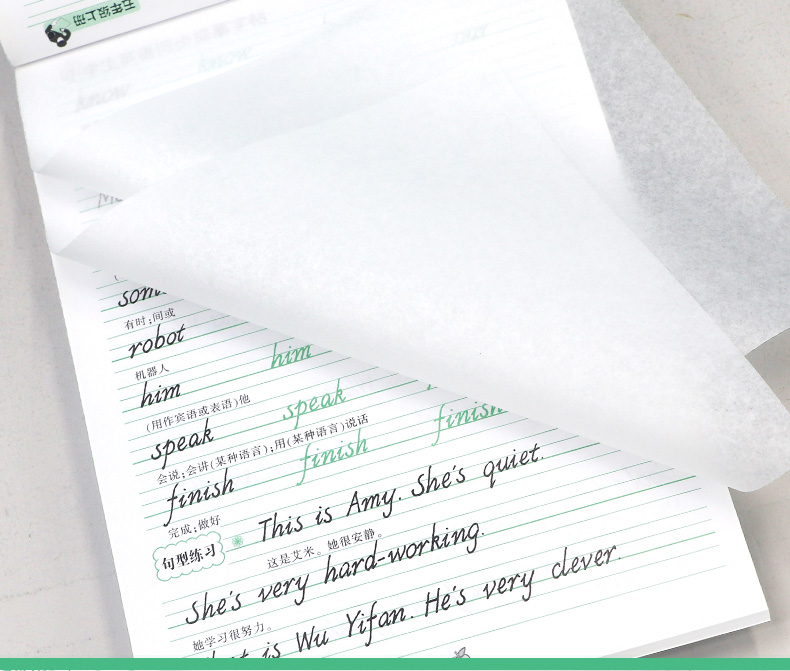 五年级上册
有时;间或
robot
机器人
him him
(用作宾语或表语)他
speak speak
会说;会讲(某种语言);用(某种语言)说话
finish finish finish
完成;做好
句型练习 This is Amy. She's quiet.
这是艾米。她很安静。
She's very hard-working.
她学习很努力。
is Wu Yifan. He's very clever.